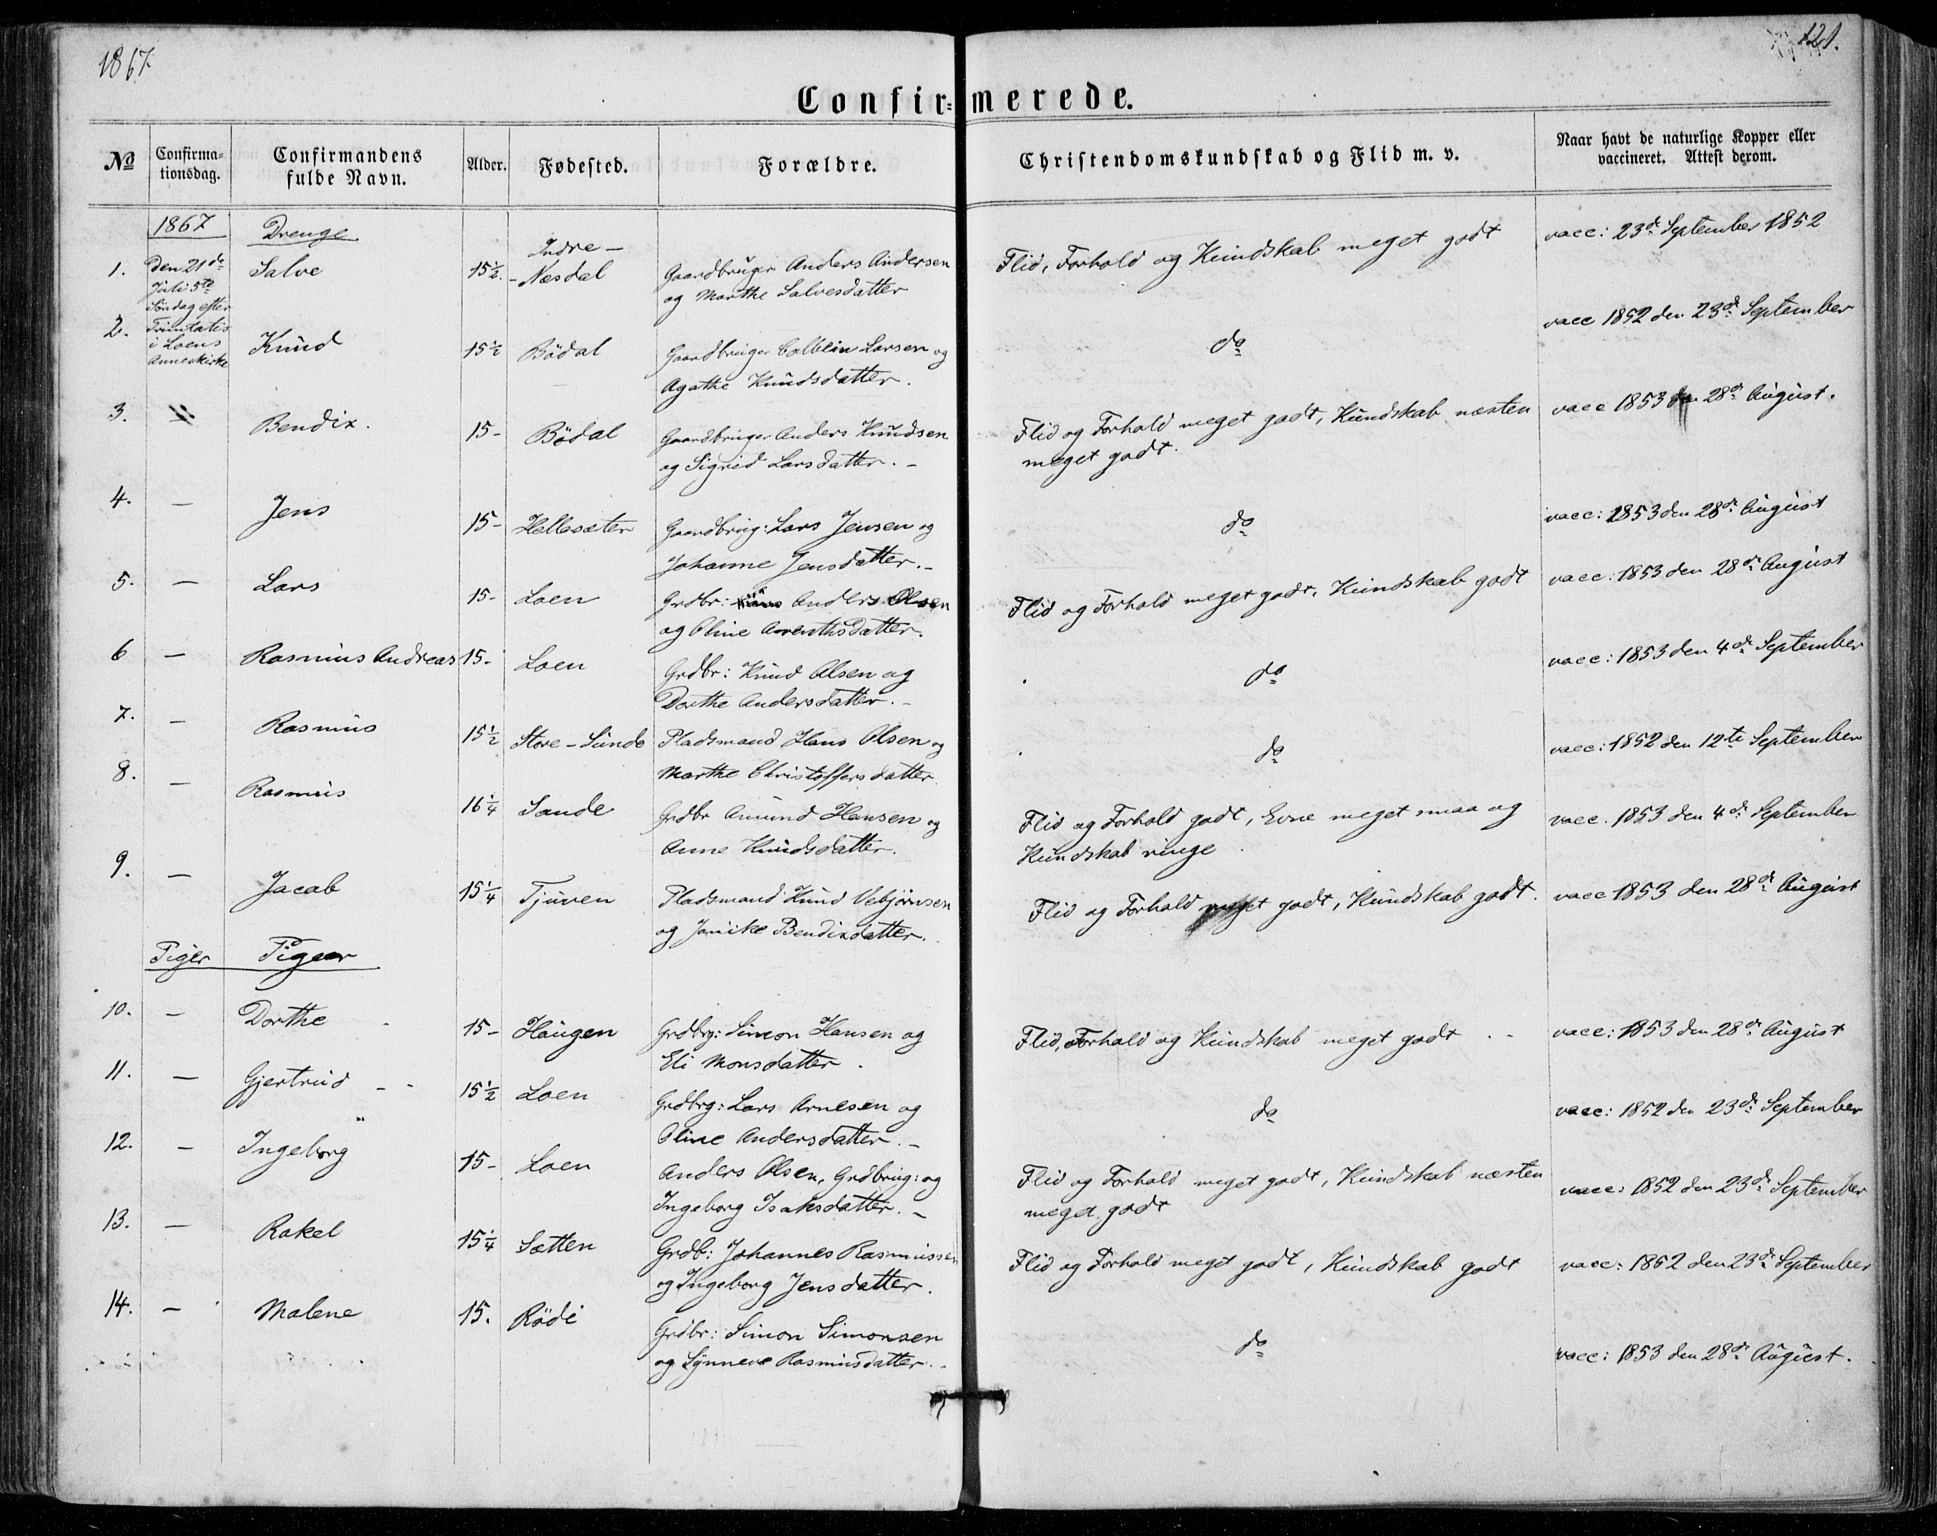 1867.
121.
Confirmerede.
No
Confirmationsdag.
Confirmandens fulde Navn.
Alder.
Fødested.
Forældre.
Christendomskundskab og Flid m. v.
Naar havt de naturlige Kopper eller vaccineret. Attest derom.
1867 Drenge
1. Den 21de Juli 5te Søndag efter Trinitatis i Loens Annexkirke Salve 15½ Indre-Næsdal Gaardbruger Anders Andersen og Marthe Salvesdatter Flid, Forhold og Kundskab meget godt vacc: 23de September 1852
2. Knud 15½ Bödal Gaardbruger Lars­en og Agathe Knudsdatter. do vacc 1852 den 23de September
3. " Bendix. 15- Bödal Gaardbruger Anders Knudsen og Sigrid Larsdatter.- Flid og Forhold meget godt, Kundskab næsten meget godt. vacc 1853 den 28de August.
4. — Jens 15- Hellesæter Gaardbrug: Lars Jensen og Johanne Jensdatter.- do vacc: 1853 den 28de August
5. — Lars 15- Loen Grdbr: Anders Olsen og Oline Arenthsdatter. Flid og Forhold meget godt, Kundskab godt vacc: 1853 den 28de August
6 — Rasmus Andreas 15- Loen Grdbr: Knud Olsen og Dorthe Andersdatter.- do vacc: 1853 den 4de September
7. — Rasmus 15½ Store-Sunde Pladsmand Hans Olsen og Marthe Christoffersdatter do vacc: 1852 den 12te September
8. — Rasmus 16¼ Sande Grdbr Amund Hansen og Anne Knudsdatter. Flid og Forhold godt, Evne meget smaa og Kundskab ringe. vacc. 1853 den 4de September
9. — Jacob 15¼ Tjuven Pladsmand Knud Vebjørnsen og Janike Bendixdatter. Flid og Forhold meget godt, Kundskab godt. vacc 1853 den 28de August
Piger Piger
10. — Dorthe 15- Haugen Grdbrg: Simon Hansen og Eli Monsdatter. Flid, Forhold og Kundskab meget godt vacc: 1853 den 28de August
11. — Gjertrud 15½ Loen Grdbrg: Lars Arnesen og Oline Andersdatter.- do vacc: 1852 den 23de September
12. — Ingeborg 15- Loen Anders Olsen, Grdbrug: og Ingeborg Isaksdatter.- Flid og Forhold meget godt, Kundskab næsten meget godt vacc: 1852 den 23de September
13. — Rakel 15¼ Sætten Grdb: Johannes Rasmussen og Ingeborg Jensdatter. Flid og Forhold meget godt, Kundskab godt vacc: 1852 den 23de September
14. — Malene 15. Rödi Grdbr: Simon Simonsen og Synneve Rasmusdatter.- do vacc: 1853 den 28de August.